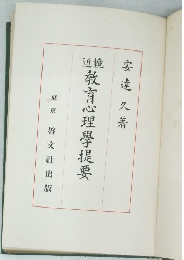 安達久著
輓近
教育心理學提要
東京
啓文社出版